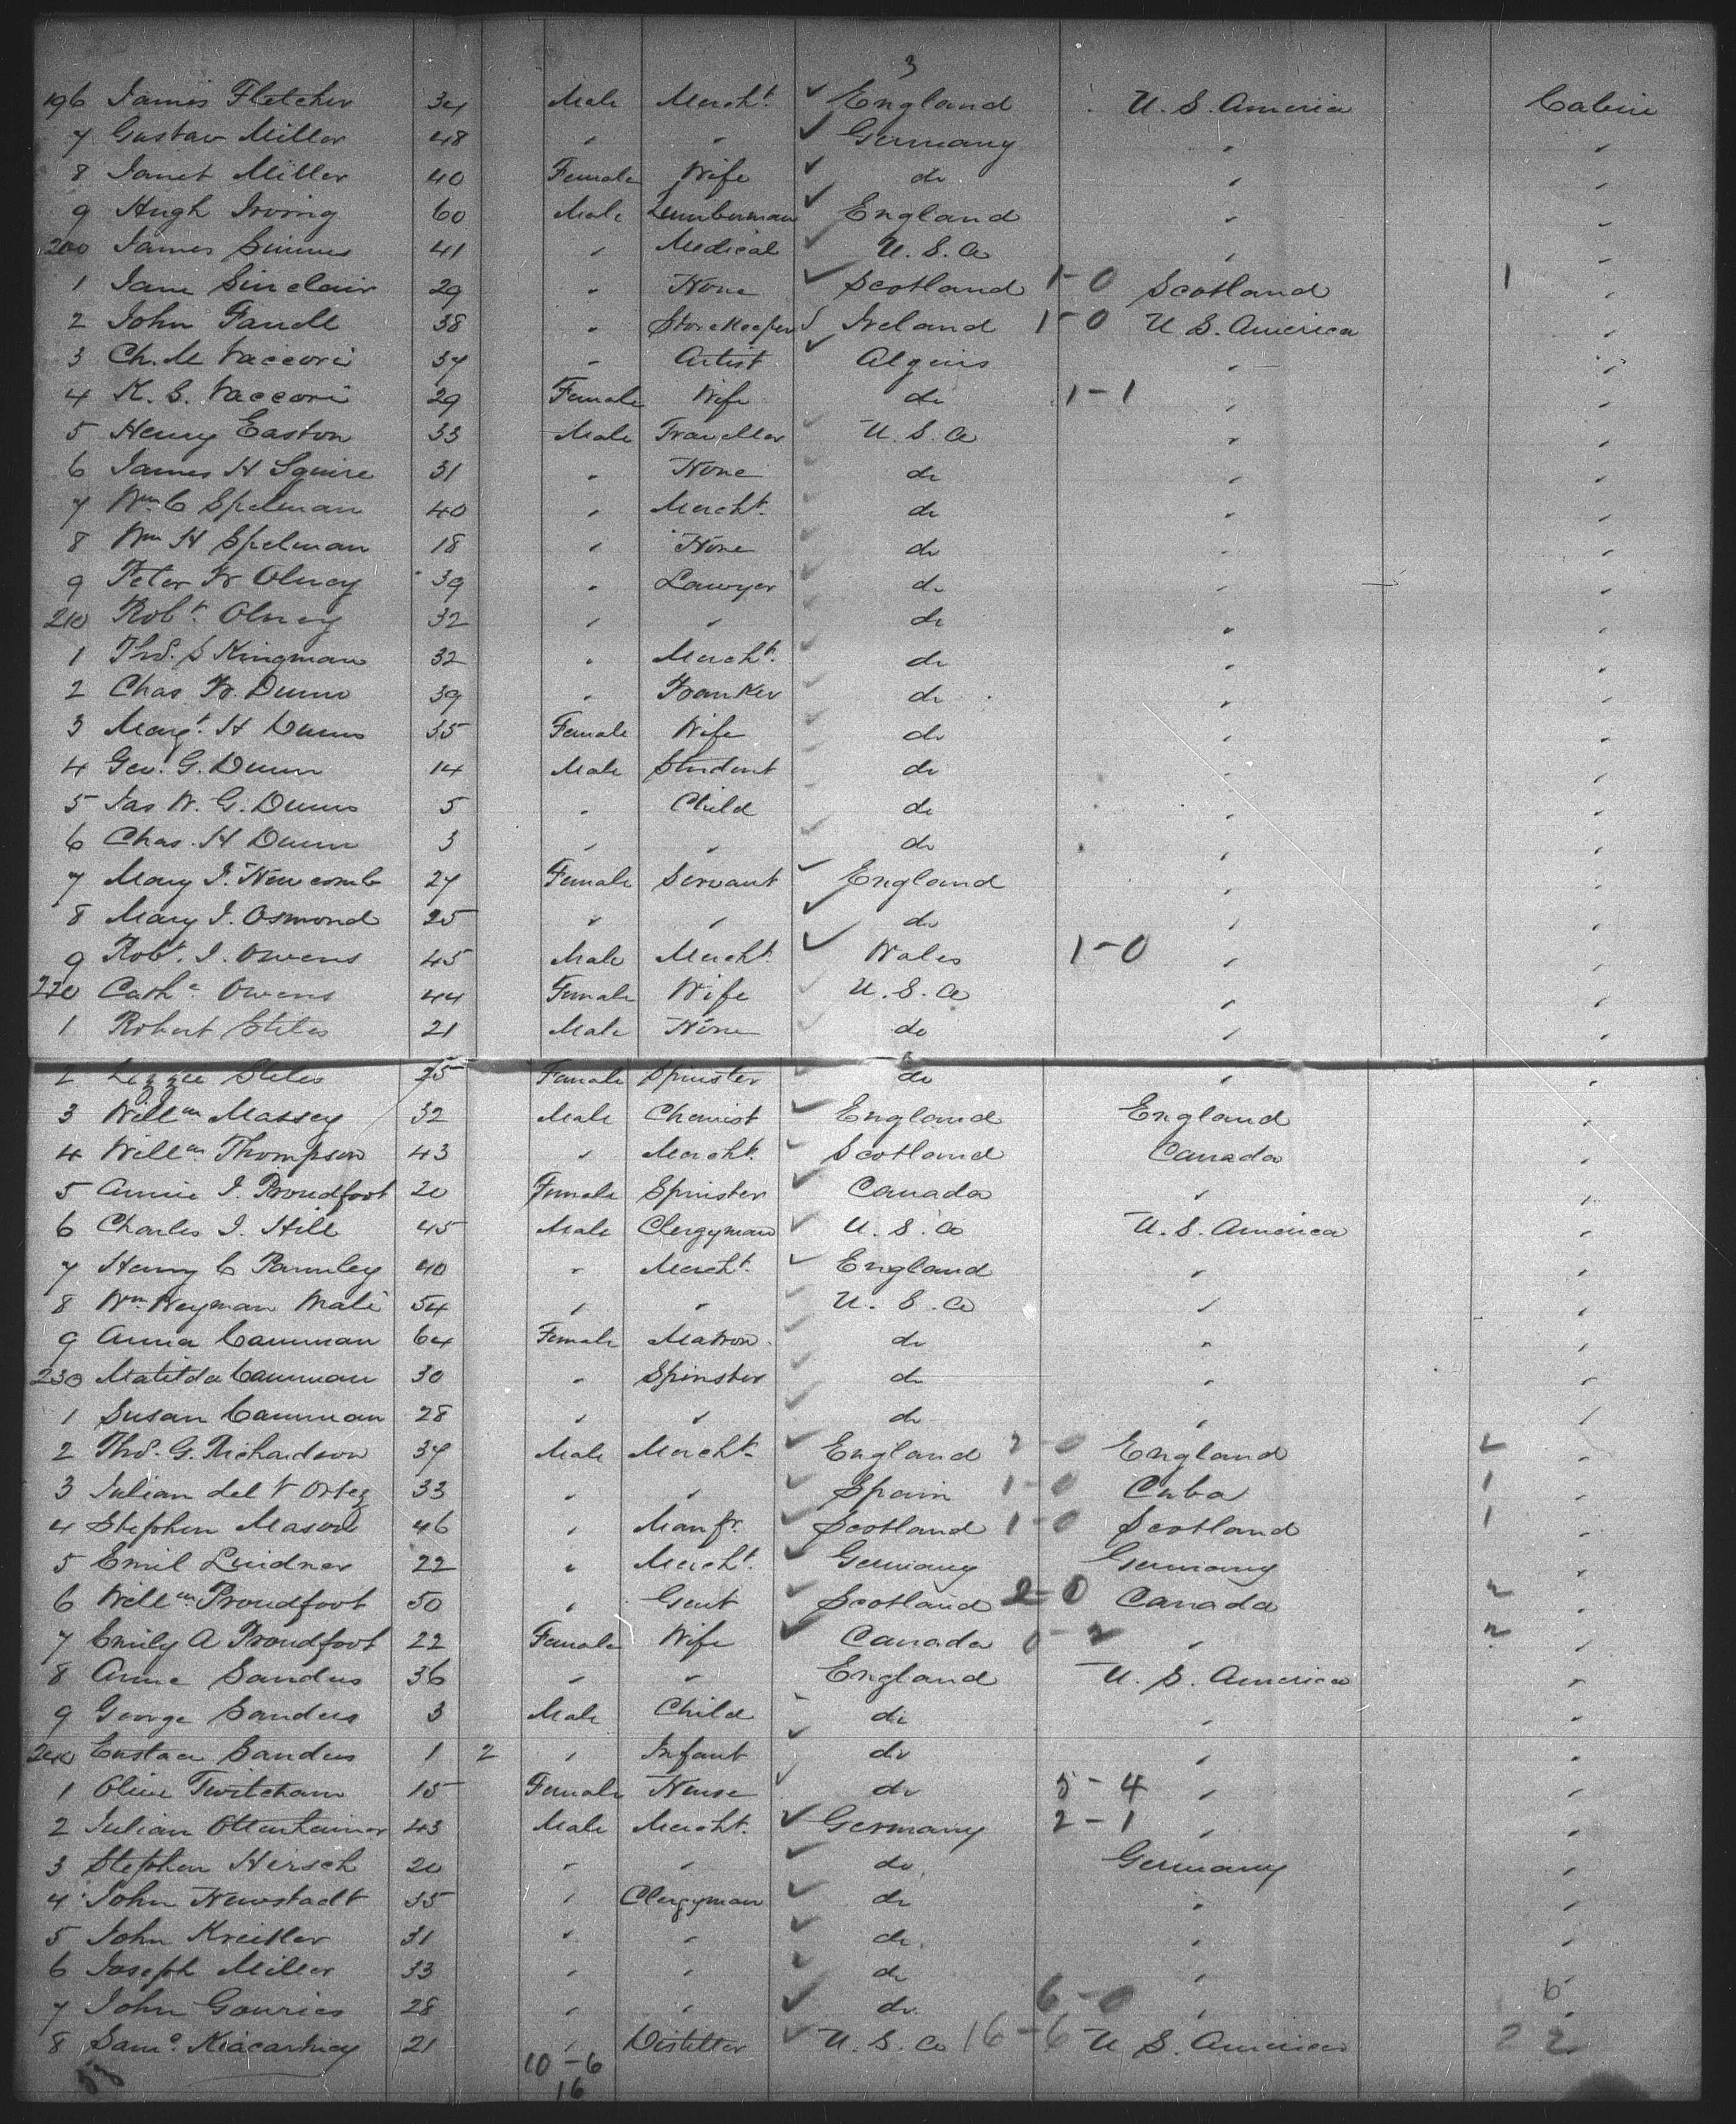 3
196 James Fletcher 34 Male Mercht. England U. S. America Cabin
7 Gustav Miller 48 " " Germany " "
8 Janet Miller 40 Female Wife do " "
9 Hugh Irving 60 Male Lumberman England " "
200 James Simms 41 " Medical U. S. A " "
1 Jane Sinclair 29 " None Scotland 1-0 Scotland 1 "
2 John 38 " Storekeeper Ireland 1-0 U S. America "
3 Ch. M Vaccori 37 " Artist Algiers " "
4 K. S. Vaccori 29 Female Wife do 1-1 " "
5 Henry Easton 33 Male Traveller U. S. A " "
6 James H Squire 31 " None do " "
7 Wm. C Spelman 40 " Mercht. do " "
8 Wm H Spelman 18 " None do " "
9 Peter W Olney 39 " Lawyer do " "
210 Robt. Olney 32 " " do " "
1 Thos. S Kingman 32 " Mercht. do " "
2 Chas W. Dunn 39 " Banker do " "
3 Margt. H Dunn 35 Female Wife do " "
4 Geo. G. Dunn 14 Male Student do " "
5 Jas W. G. Dunn 5 " Child do " "
6 Chas. H Dunn 3 " " do " "
7 Mary J. Newcomb 27 Female Servant England " "
8 Mary J. Osmond 25 " " do " "
9 Robt. J. Owens 45 Male Mercht. Wales 1-0 " "
220 Cathe Owens 44 Female Wife U. S. A " "
1 Robert Stiles 21 Male None do " "
2 Lizzie Stiles 25 Female Spinster do " "
3 Willm Massey 32 Male Chemist England England "
4 Willm Thompson 43 " Mercht. Scotland Canada "
5 Annie J. Proudfoot 20 Female Spinster Canada " "
6 Charles J. Hill 45 Male Clergyman U. S. A U. S. America "
7 Henry C Parmley 40 " Mercht. England " "
8 Wm. Weyman Mali 54 " " U. S. A " "
9 Anna Camman 64 Female Matron do " "
230 Matilda Camman 30 " Spinster do " "
1 Susan Camman 28 " " do " "
2 Thos. G. Richardson 37 Male Mercht. England 2-0 England 2 "
3 Julian del V Ortez 33 " " Spain 1-0 Cuba 1 "
4 Stephen Mason 46 " Manfr. Scotland 1-0 Scotland 1 "
5 Emil Lindner 22 " Mercht. Germany Germany "
6 Willm Proudfoot 50 " Gent Scotland 2-0 Canada 2 "
7 Emily A Proudfoot 22 Female Wife Canada 0-2 " 2 "
8 Anne Sanders 36 " " England U. S. America "
9 George Sanders 3 Male Child do " "
240 Eustace Sanders 1 2 " Infant do " "
1 Olive Twitcham 15 Female Nurse do 5-4 " "
2 Julian Ottenheimer 43 Male Mercht. Germany 2-1 " "
3 Stephen Hirsch 20 " " do Germany "
4 John Newstadt 35 " Clergyman do " "
5 John Kreisler 31 " " do " "
6 Joseph Miller 33 " " do " "
7 John Gouries 28 " " do 6-0 " 6 "
8 Saml. Macartney 21 " Distiller U. S. A 16-6 U S. America 22
53 10-6
16